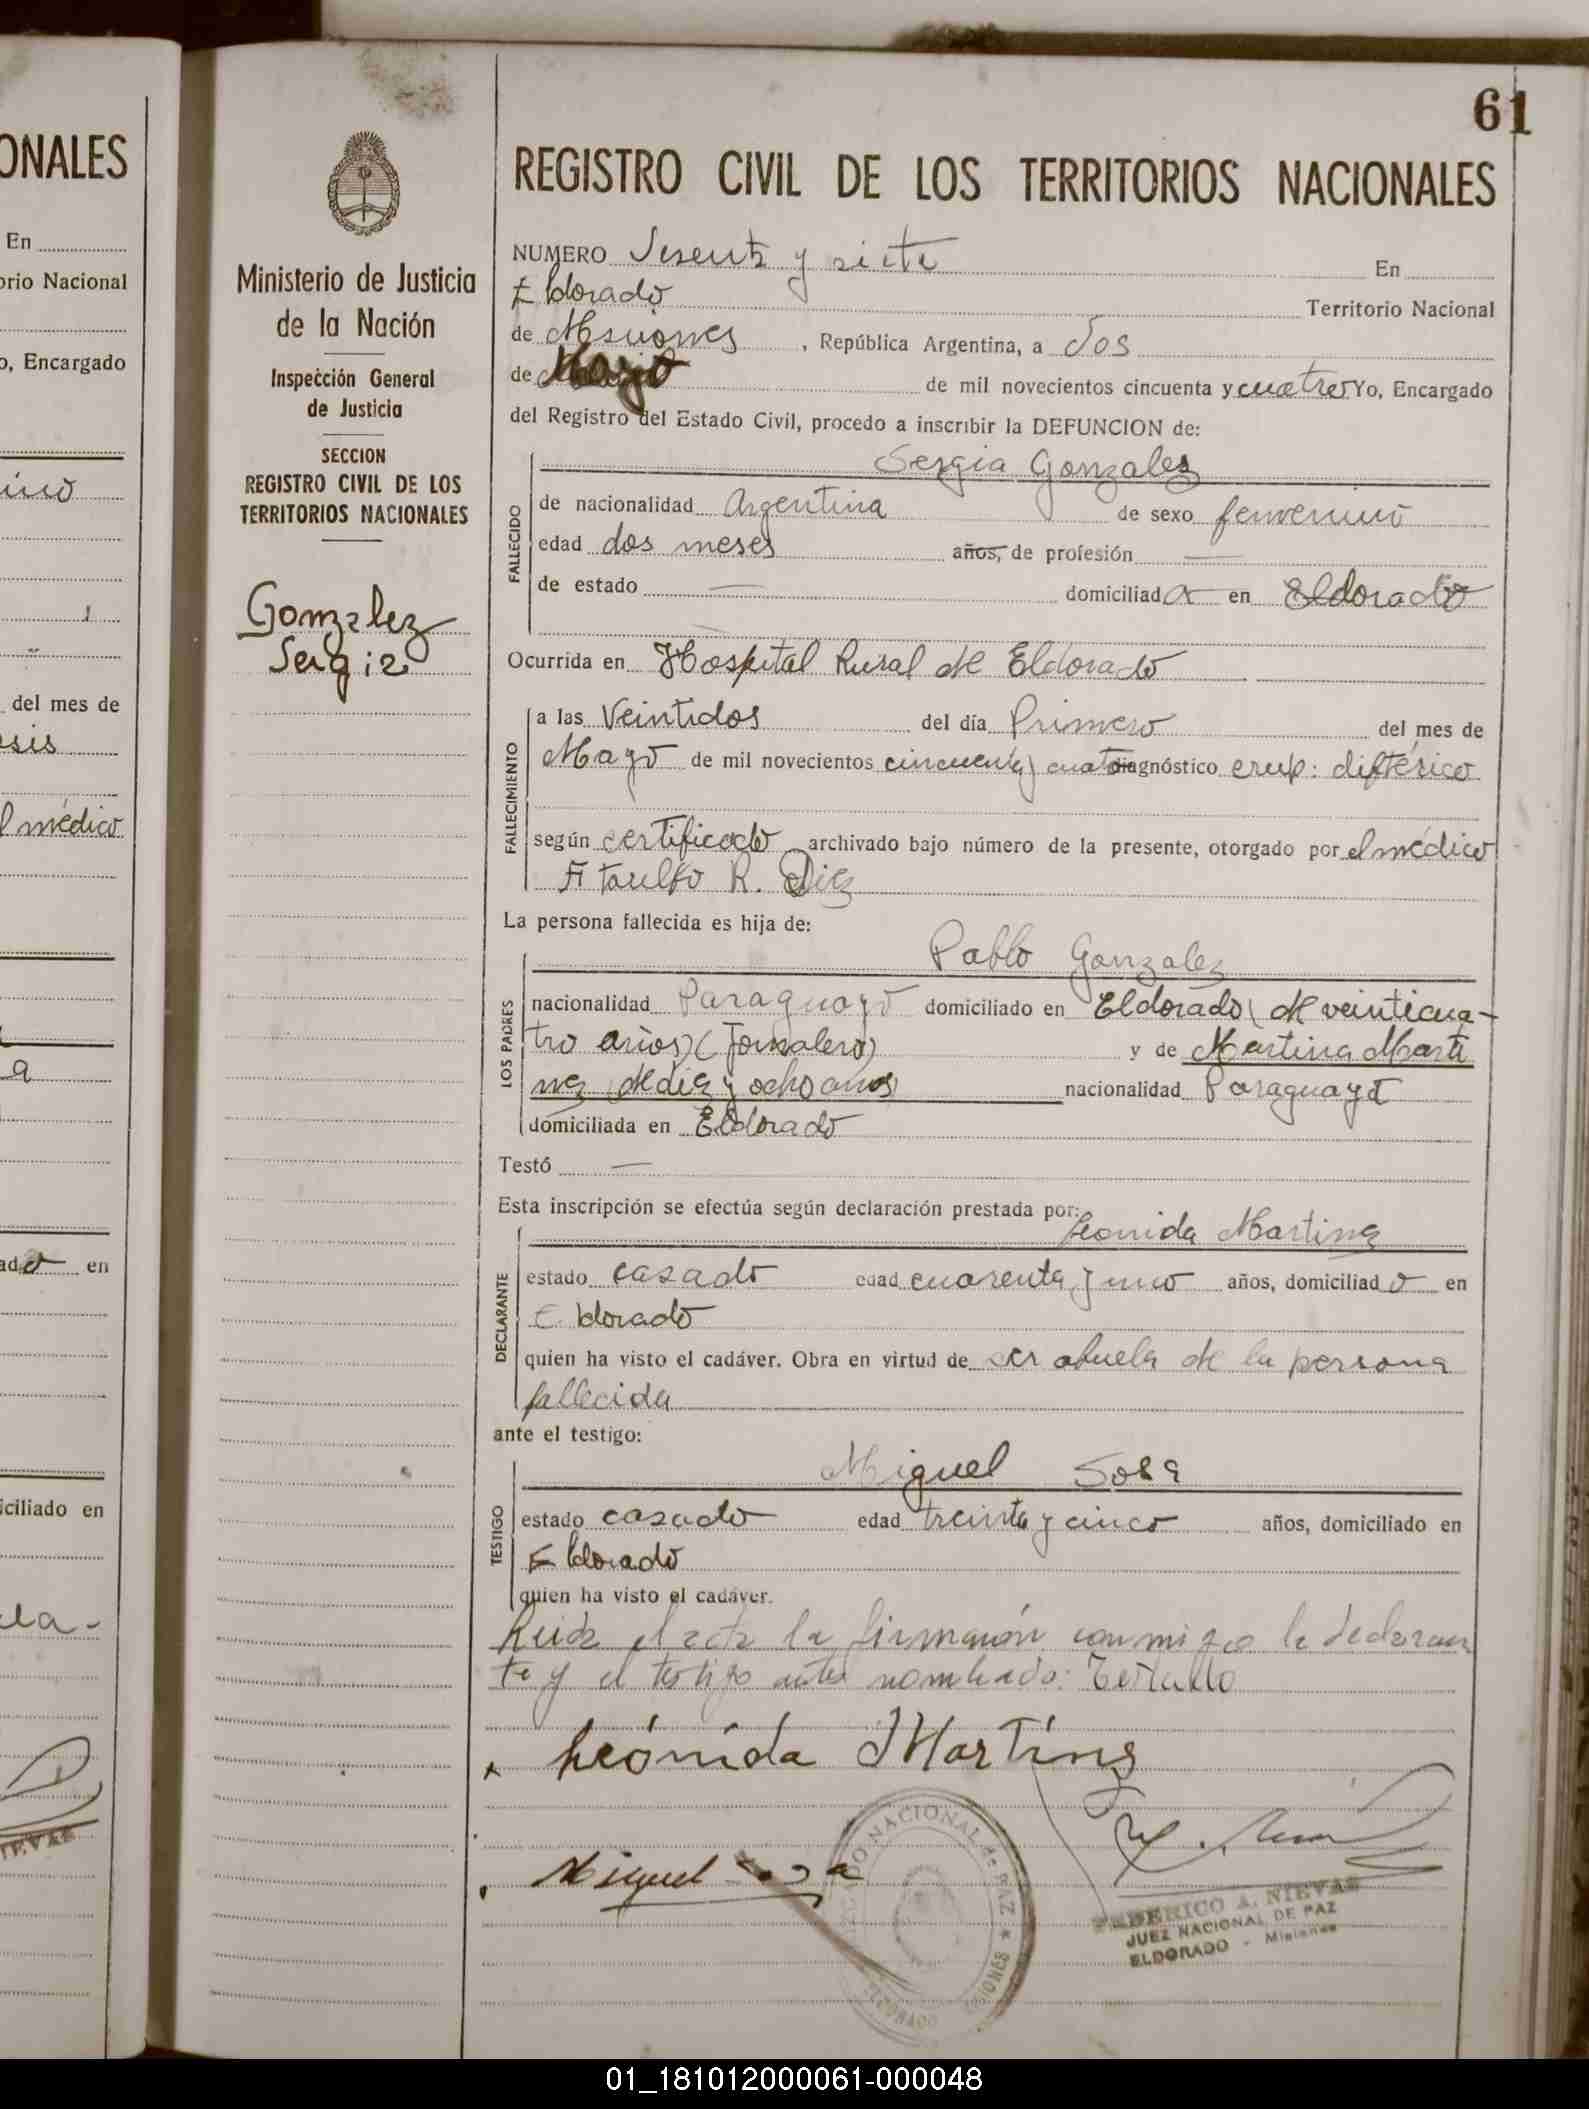 ONALES
En
orio Nacional
o, Encargado
del mes de
osis
l médico
a
ado en
iciliado en
NIEVAS
61
Ministerio de Justicia
de la Nación
Inspección General
de Justicia
SECCION
REGISTRO CIVIL DE LOS
TERRITORIOS NACIONALES
Gonzalez
Sergia
REGISTRO CIVIL DE LOS TERRITORIOS NACIONALES
NUMERO Sesenta y siete En
Eldorado Territorio Nacional
de Misiones, República Argentina, a dos
de Mayo de mil novecientos cincuenta y cuatro Yo, Encargado
del Registro del Estado Civil, procedo a inscribir la DEFUNCION de:
Sergia Gonzalez
FALLECIDO
de nacionalidad Argentina de sexo femenino
edad dos meses años, de profesión —
de estado — domiciliada en Eldorado
Ocurrida en Hospital Rural de Eldorado
FALLECIMIENTO
a las Veintidos del día Primero del mes de
Mayo de mil novecientos cincuenta y cuatro diagnóstico crup: diftérico
según certificado archivado bajo número de la presente, otorgado por el médico
Ataulfo R. Diez
La persona fallecida es hija de:
Pablo Gonzalez
LOS PADRES
nacionalidad Paraguayo domiciliado en Eldorado (de veinticua-
tro años) (Jornalero) y de Martina Marti
nez (de diez y ocho años) nacionalidad Paraguaya
domiciliada en Eldorado
Testó —
Esta inscripción se efectúa según declaración prestada por:
Leonida Martinez
DECLARANTE
estado casado edad cuarenta y uno años, domiciliado en
Eldorado
quien ha visto el cadáver. Obra en virtud de ser abuela de la persona
fallecida
ante el testigo:
Miguel Sosa
TESTIGO
estado casado edad treinta y cinco años, domiciliado en
Eldorado
quien ha visto el cadáver.
Leida el acta la firmarón conmigo la declaran
te y el testigo antes nombrado:
Leónida Martínz
Miguel Sosa
JUZGADO NACIONAL de PAZ * ELDORADO MISIONES
FEDERICO A. NIEVAS
JUEZ NACIONAL DE PAZ
ELDORADO - Misiones
01_181012000061-000048